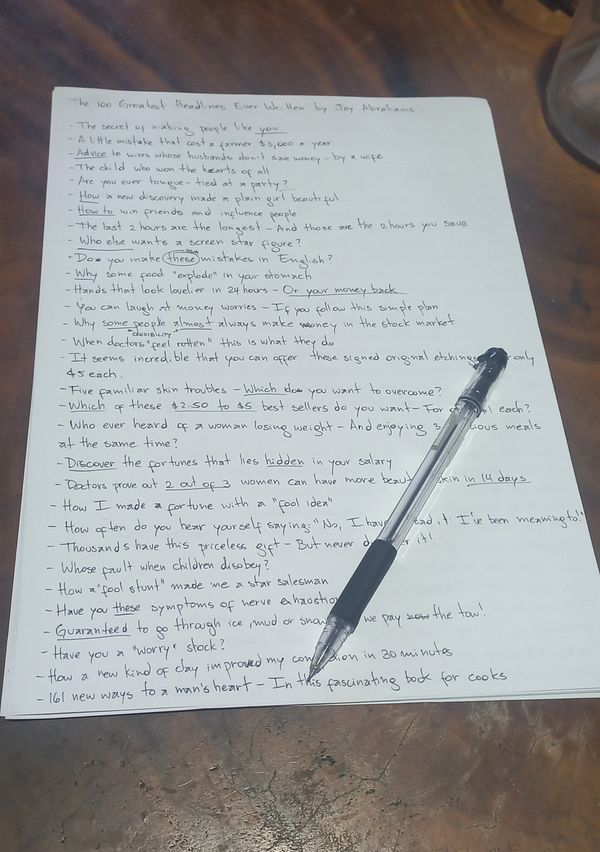 The 100 Greatest Headlines Ever Written by Jay Abrahams
- The secret of making people like you
- A little mistake that cost a farmer $3,000 a year
- Advice to wives whose husbands don't save money - by a wife
- The child who won the hearts of all
- Are you ever tongue-tied at a party?
- How a new discovery made a plain girl beautiful
- How to win friends and influence people
- The last 2 hours are the longest - And those are the 2 hours you save
- Who else wants a screen star figure?
- Do you make these mistakes in English?
- Why some food "explode" in your stomach
- Hands that look lovelier in 24 hours - Or your money back
- You can laugh at money worries - If you follow this simple plan
- Why some people almost always make money in the stock market
CREDIBILITY
- When doctors "feel rotten" this is what they do
- It seems incredible that you can offer these signed original etchings only
$5 each.
- Five familiar skin troubles - Which do you want to overcome?
- Which of these $2.50 to $5 best sellers do you want - For each?
- Who ever heard of a woman losing weight - And enjoying 3 meals
at the same time?
- Discover the fortunes that lies hidden in your salary
- Doctors prove out 2 out of 3 women can have more skin in 14 days
- How I made a fortune with a "fool idea"
- How often do you hear yourself saying: "No, I I've been meaning to!"
- Thousands have this priceless gift - But never it!
- Whose fault when children disobey?
- How a "fool stunt" made me a star salesman
- Have you these symptoms of nerve
- Guaranteed to go through ice, mud or we pay the tow!
- Have you a "worry" stock?
- How a new kind of clay improved my in 30 minutes
- 161 new ways to a man's heart - In this fascinating book for cooks